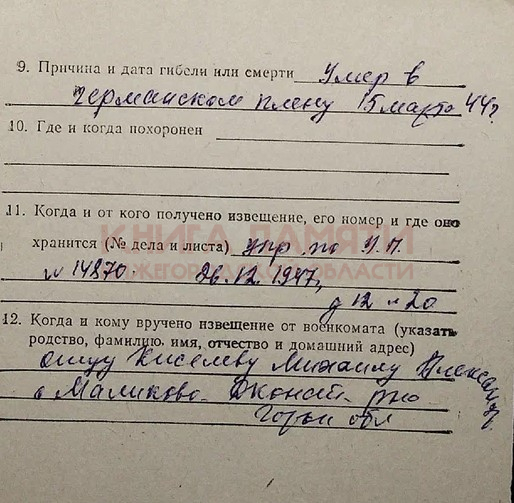 9. Причина и дата гибели или смерти Умер в
германском плену 15 марта 44 г
10. Где и когда похоронен
11. Когда и от кого получено извещение, его номер и где оно
КНИГА ПАМЯТИ
хранится (№ дела и листа) упр. по У.П.
НИЖЕГОРОДСКОЙ ОБЛАСТИ
№ 14870. 26.12.1947,
д 12 л 20
12. Когда и кому вручено извещение от военкомата (указать
родство, фамилию, имя, отчество и домашний адрес)
отцу Киселеву Михаилу
с Маликово
Горьк обл